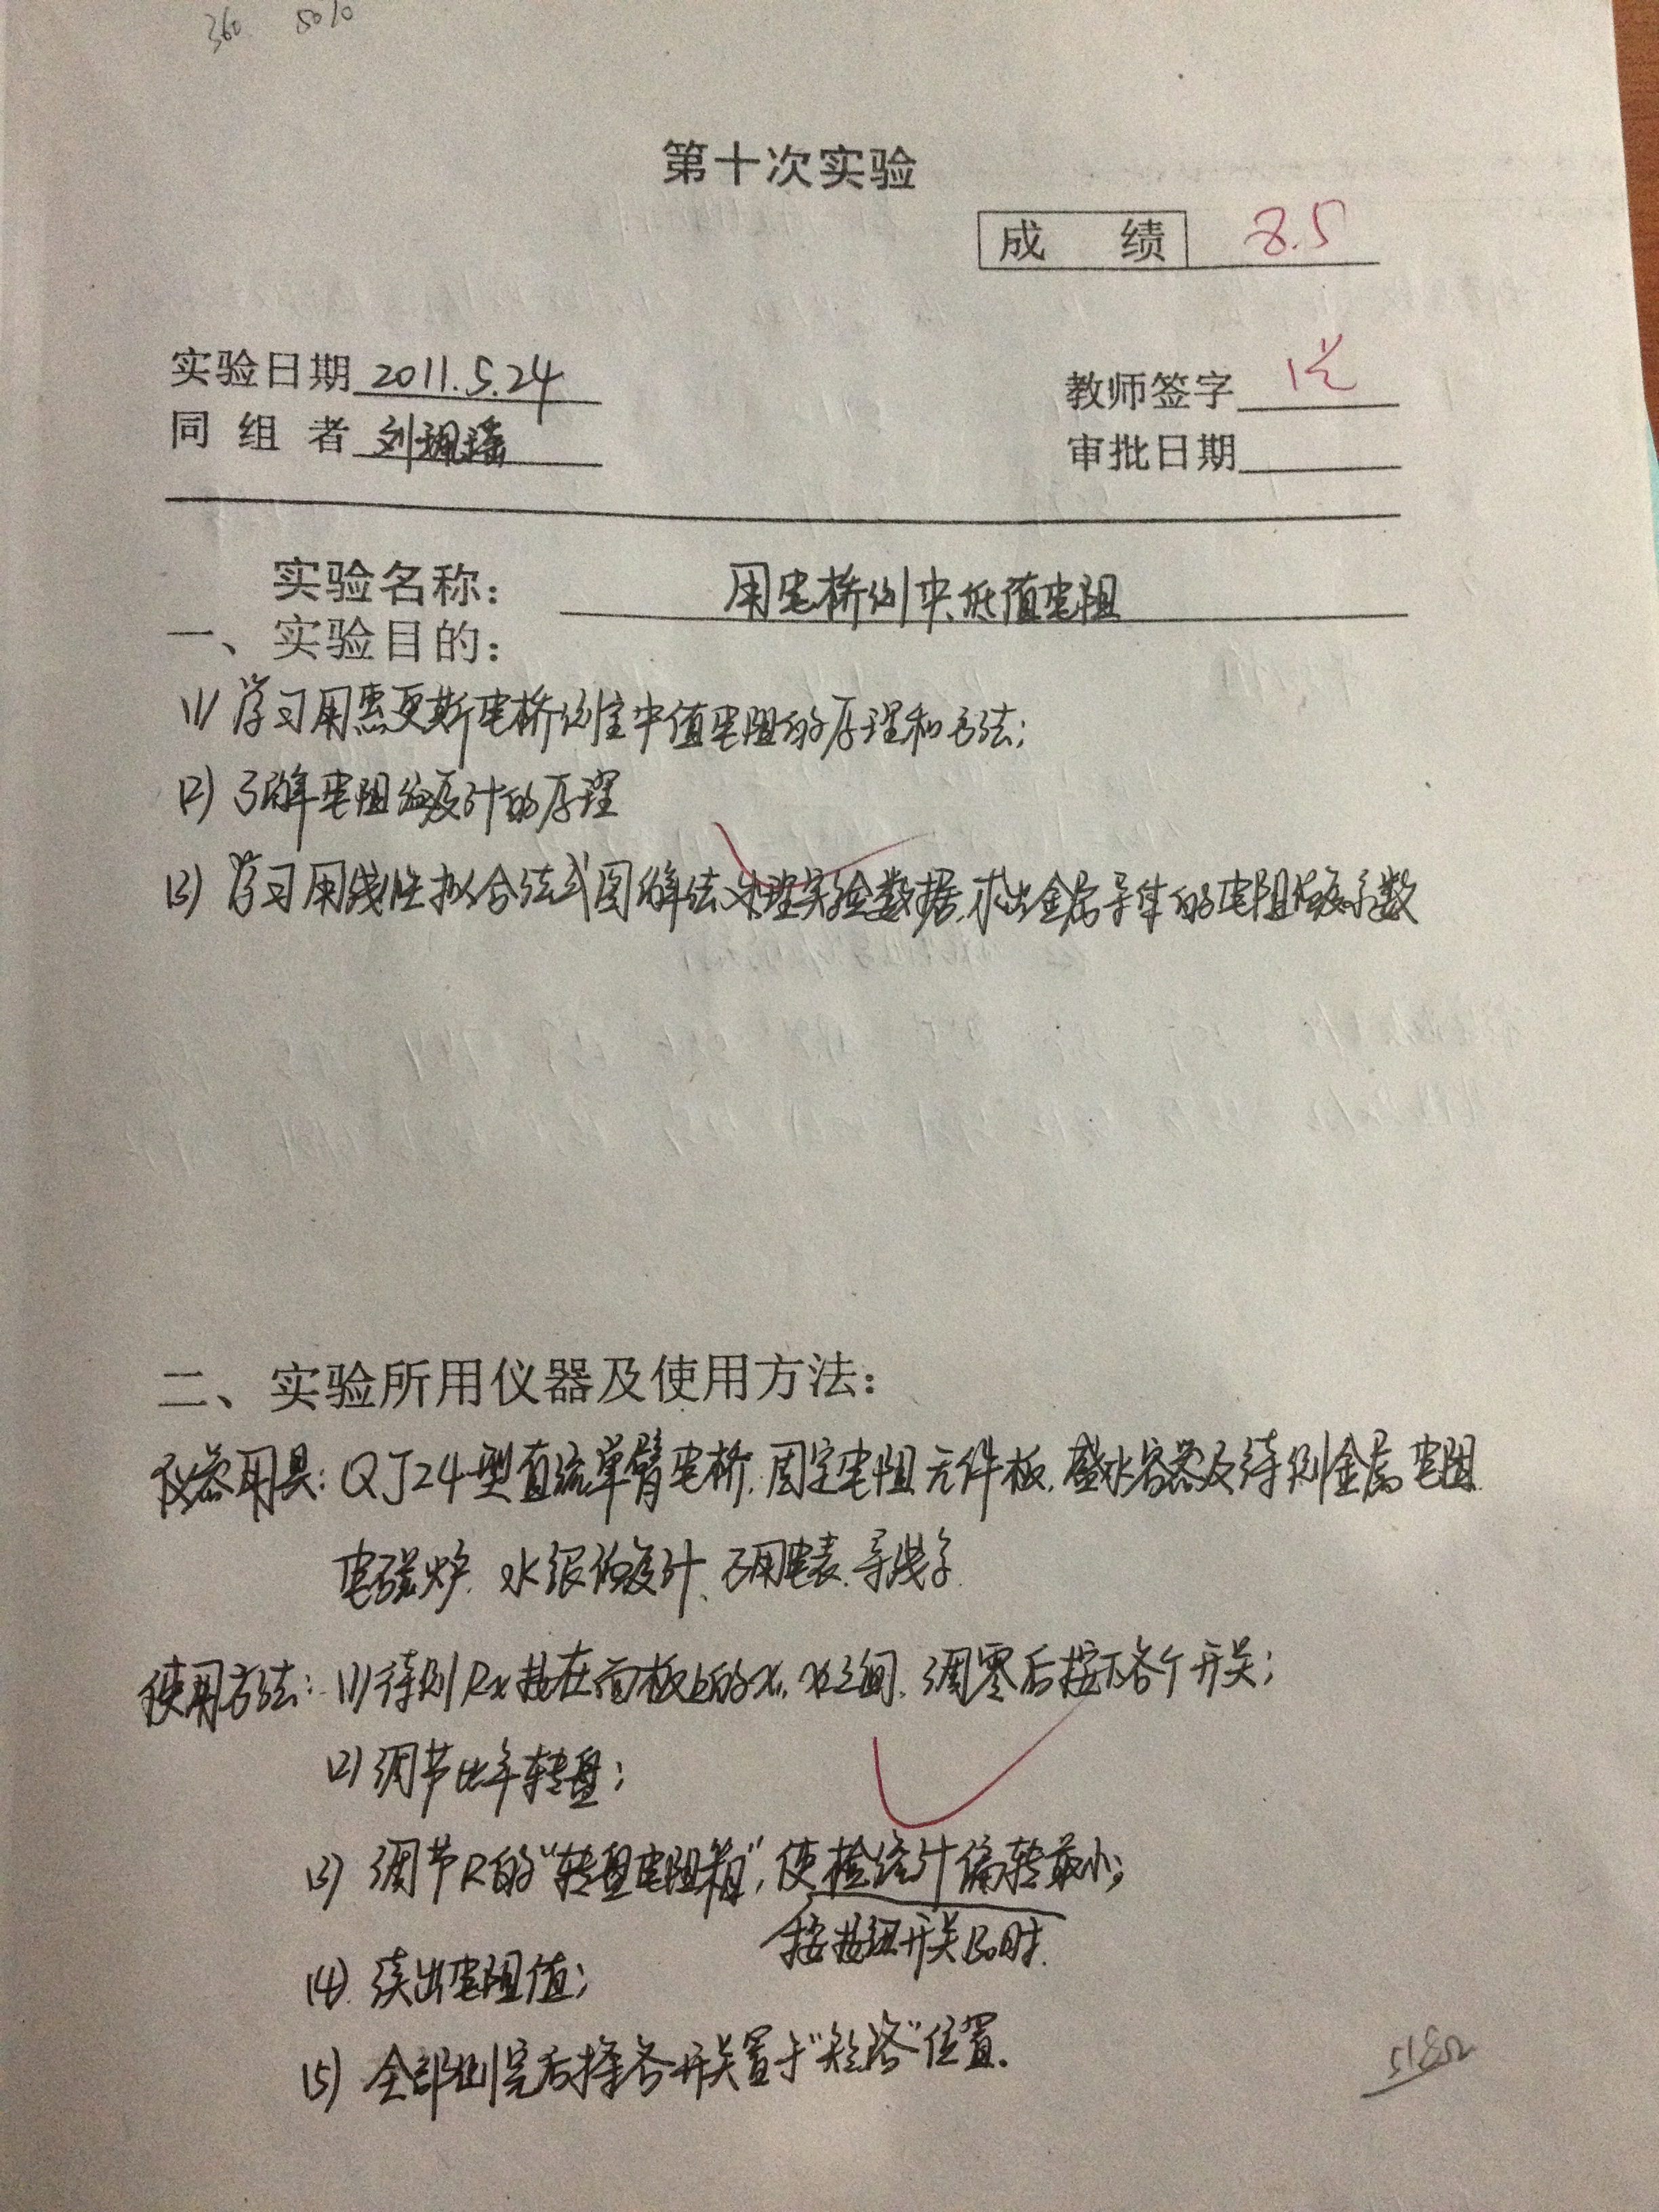 360 50/0
第十次实验
成 绩 8.5
实验日期 2011.5.24
教师签字
同 组 者 刘珮瑶
审批日期
实验名称： 用电桥测中、低值电阻
一、实验目的：
(1) 学习用惠更斯电桥测定中值电阻的原理和方法；
(2) 了解电阻温度计的原理
(3) 学习用线性拟合法或图解法处理实验数据，求出金属导体的电阻温度系数
二、实验所用仪器及使用方法：
仪器用具：QJ24型直流单臂电桥、固定电阻元件板、盛水容器及待测金属电阻、
电磁炉、水银温度计、万用电表、导线等.
使用方法：(1) 待测Rx接在面板上的x1、x2之间，调零后按下各个开关；
(2) 调节比率转盘；
(3) 调节R的“转盘电阻箱”，使检流计偏转最小；
按按钮开关B0时.
(4) 读出电阻值；
(5) 全部测完后择各开关置于“短路”位置.
518Ω